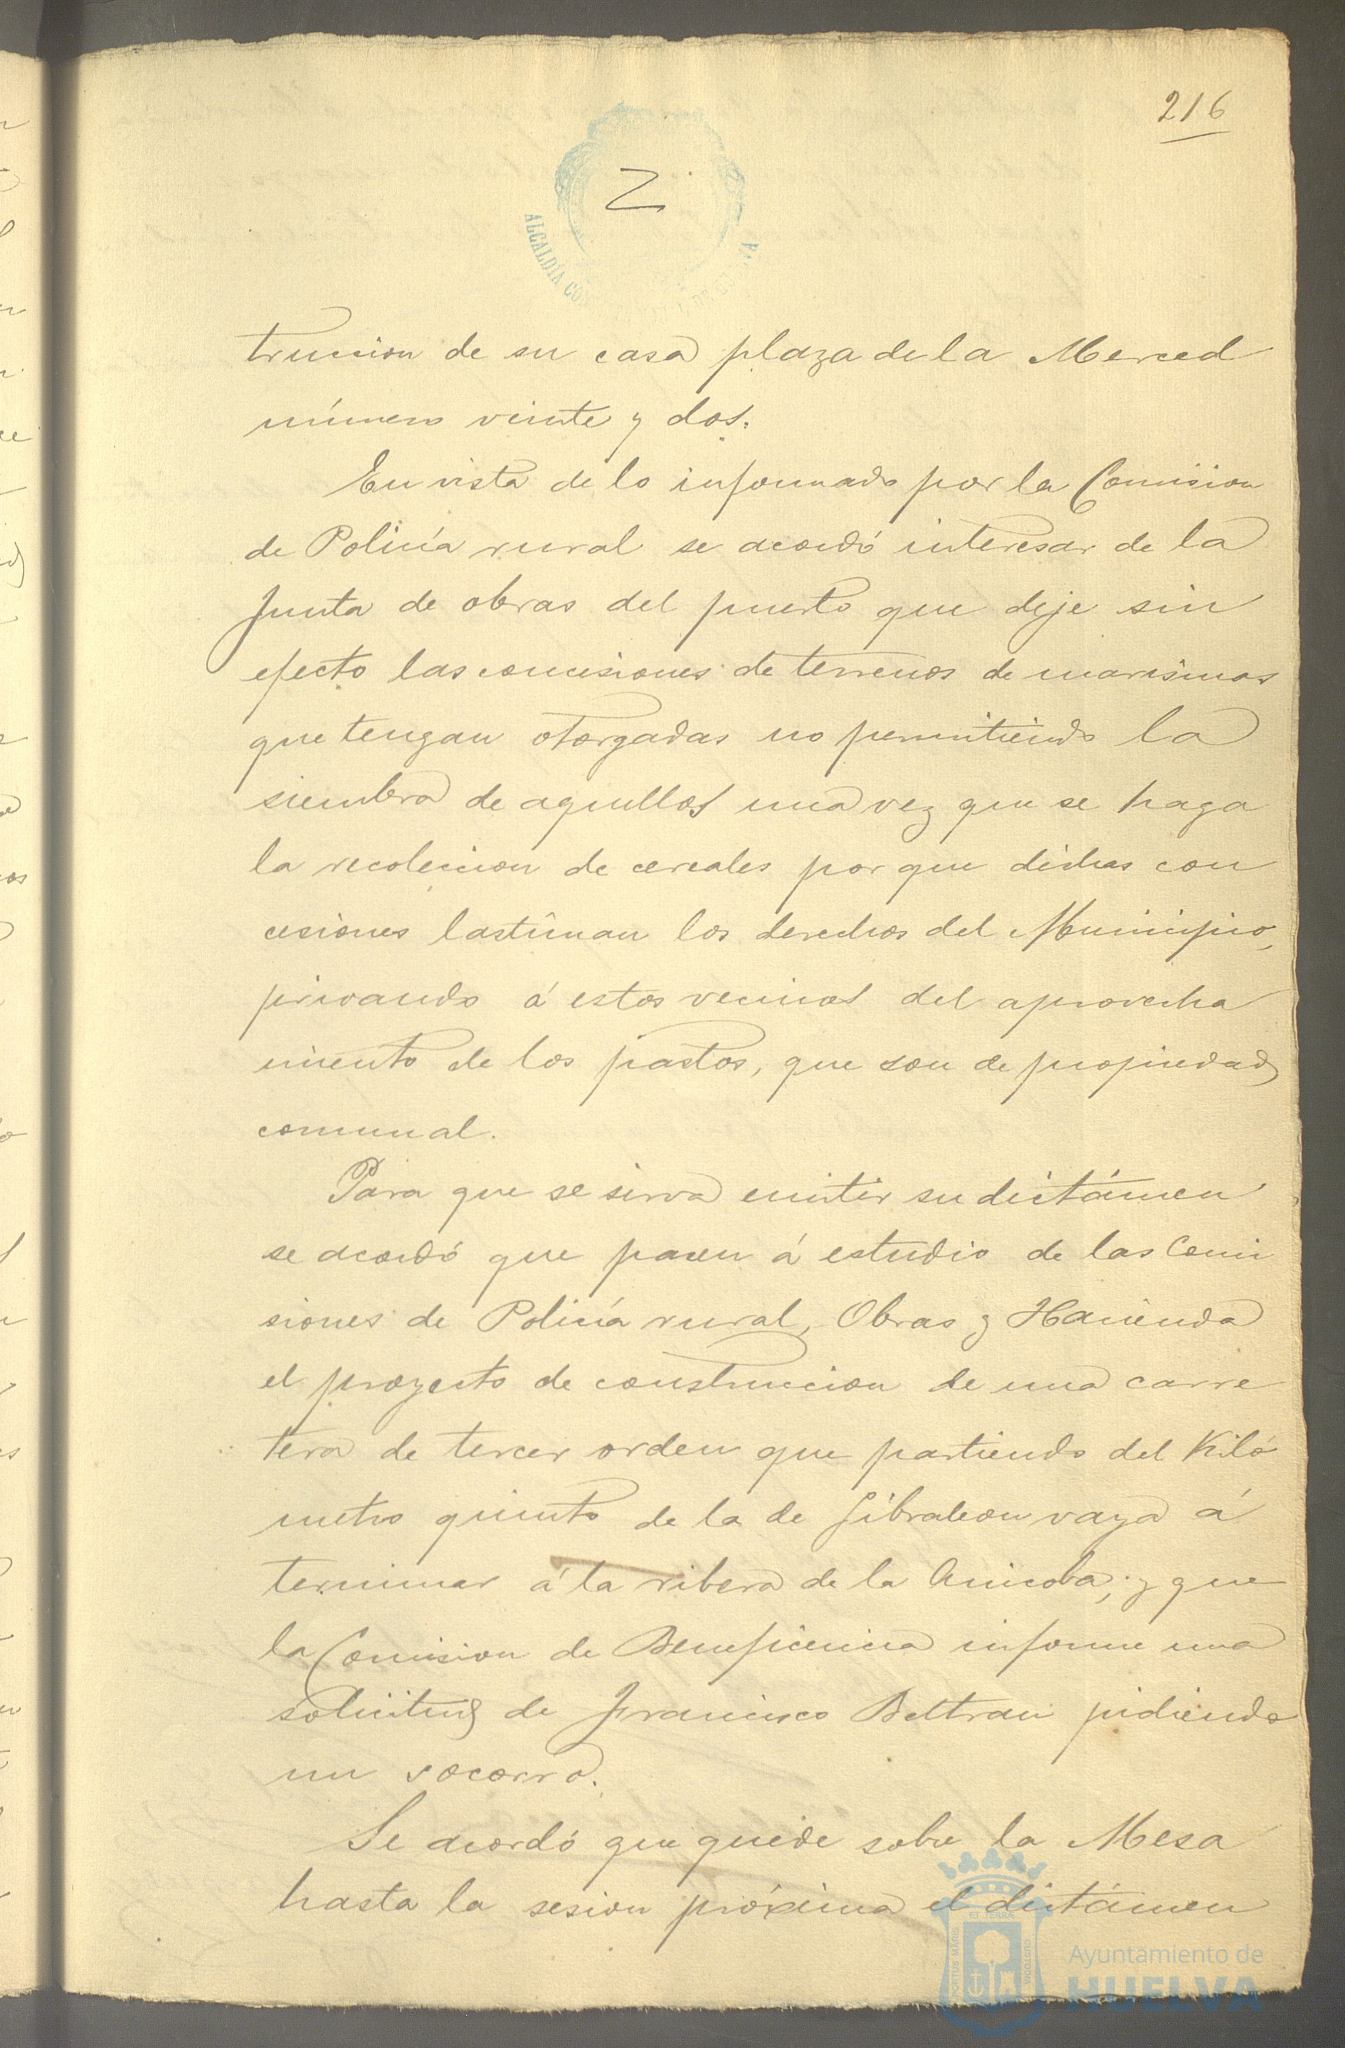 216
ALCALDÍA CON
truccion de su casa plaza de la Merced
número veinte y dos.
En vista de lo informado por la Comision
de Policía rural se acordó interesar de la
Junta de obras del puerto que deje sin
efecto las concesiones de terrenos de marismas
que tengan otorgadas no permitiendo la
siembra de aquellos una vez que se haga
la recoleccion de cereales por que dichas con
cesiones lastiman los derechos del Municipio,
privando á estos vecinos del aprovecha
miento de los pastos, que son de propiedad
comunal.
Para que se sirva emitir su dictámen
se acordó que pasen á estudio de las Comi
siones de Policía rural, Obras y Hacienda
el proyecto de construccion de una carre
tera de tercer orden que partiendo del Kiló
metro quinto de la de Gibraleon vaya á
terminar á la ribera de la Anicoba; y que
la Comision de Beneficencia informe una
solicitud de Francisco Beltran pidiendo
un socorro.
Se acordó que quede sobre la Mesa
hasta la sesion próxima el dictámen
Ayuntamiento de
HUELVA